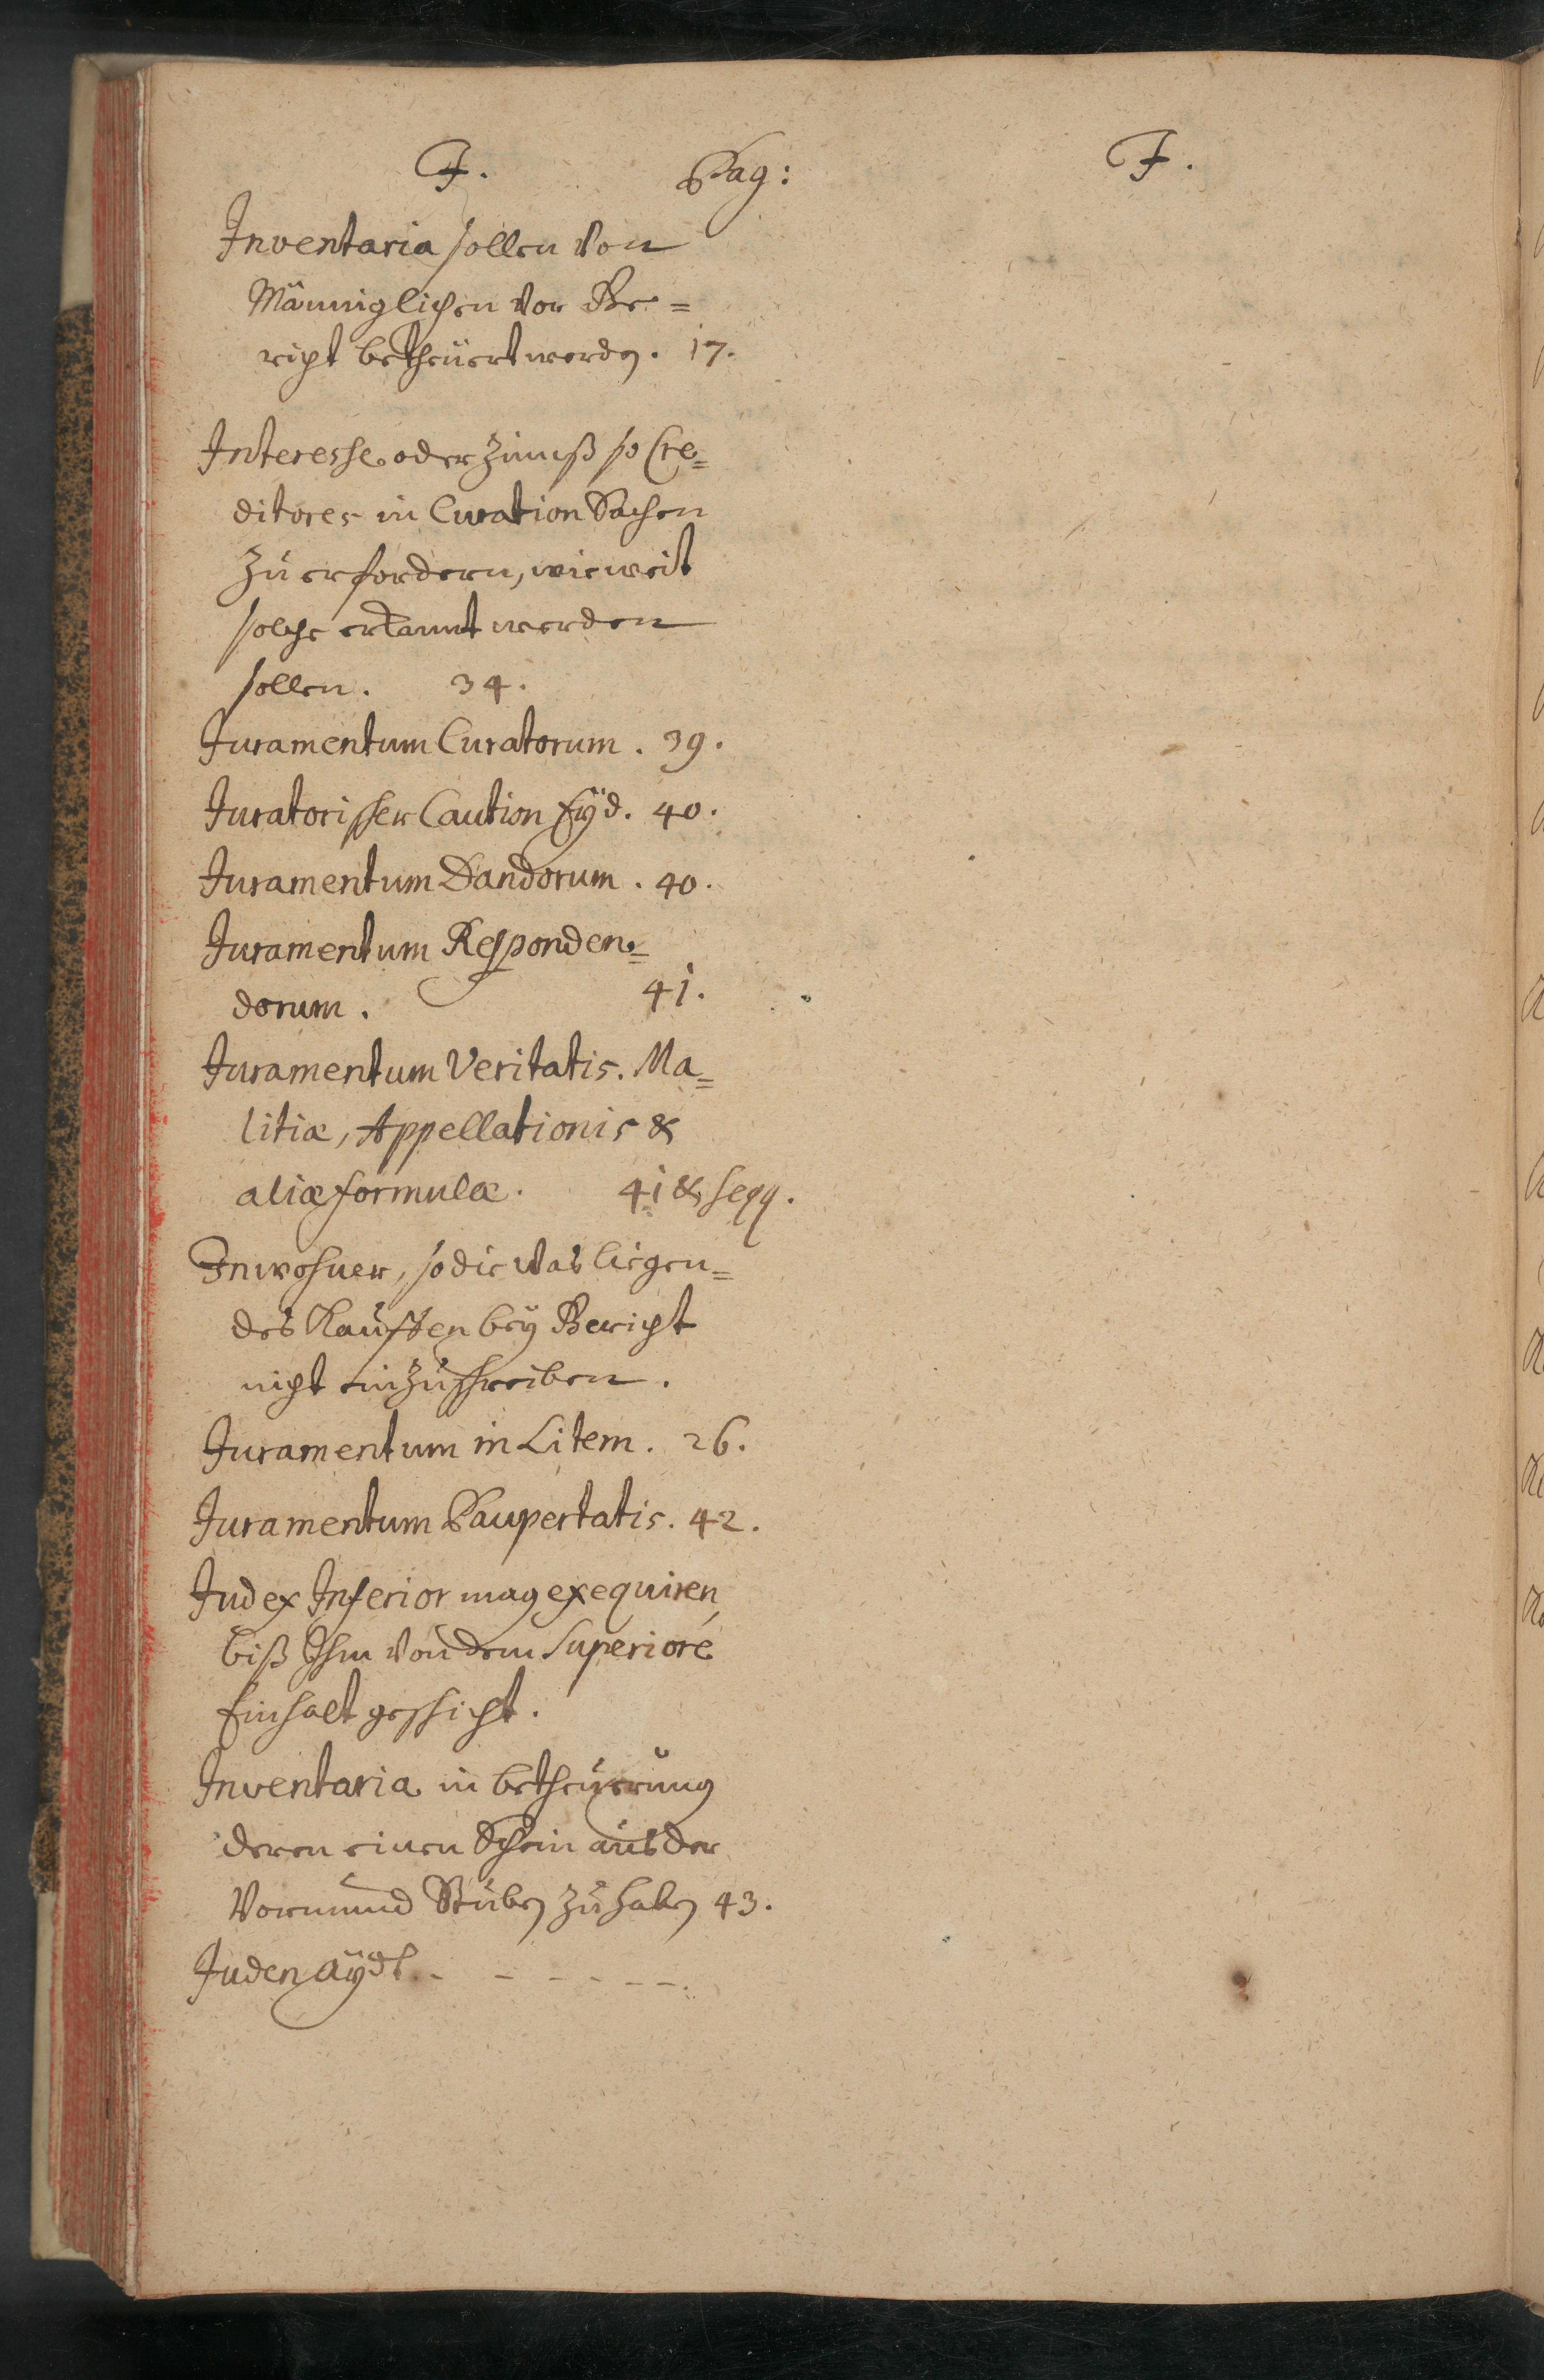 J. Pag:
Inventaria sollen von
Männiglichen vor Ge=
richt betheüert werdn. 17.
Interesse oder Zinnß so Cre=
ditores in Curation Sachen
zu erfordern, wie weit
solche erkannt werden
sollen. 34.
Juramentum Curatorum. 39.
Juratorischer Caution Eÿd. 40.
Juramentum Dandorum. 40.
Juramentum Responden=
dorum. 41.
Juramentum Veritatis. Ma=
litiæ, Appellationis &
aliæ formulæ. 41 & seqq.
Inwohner, so die was liegen=
des Kauffen beÿ Gericht
nicht einzuschreiben.
Juramentum in Litem. 26.
Juramentum Paupertatis. 42.
Judex Inferior mag exequiren,
biß Ihm von dem Superiore
Einhalt geschicht.
Inventaria in betheüerung
deren einen Schein aus der
Vormund Stubn zu habn 43.
Juden Aÿdt. - - - - - -.
J.